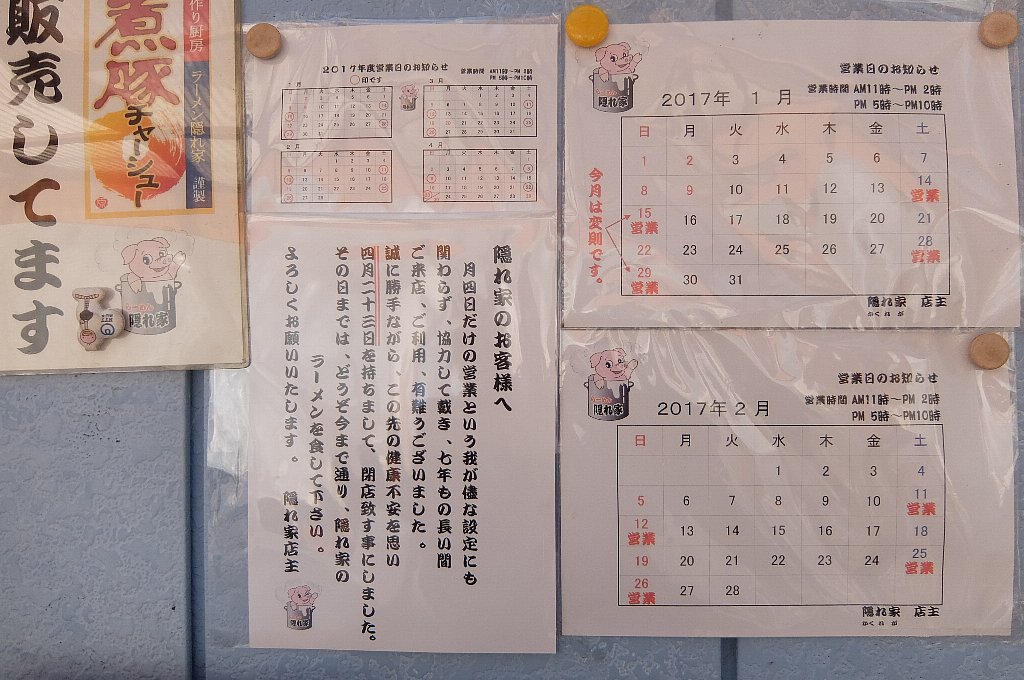 販売してます
煮豚
チャーシュー
作り厨房
ラーメン隠れ家
謹製
らーめん
隠れ家
2017年度営業日のお知らせ
〇印です
営業時間 AM11時～PM 2時
PM 5時～PM10時
1月
3月
2月
4月
隠れ家のお客様へ
月四日だけの営業という我が儘な設定にも
関わらず、協力して戴き、七年もの長い間
ご来店、ご利用、有難うございました。
誠に勝手ながら、この先の健康不安を思い
四月二十三日を持ちまして、閉店致す事にしました。
その日までは、どうぞ今まで通り、隠れ家の
ラーメンを食して下さい。
よろしくお願いいたします。 隠れ家店主
隠れ家
らーめん
隠れ家
営業日のお知らせ
2017年 1 月
営業時間 AM11時～PM 2時
PM 5時～PM10時
日 月 火 水 木 金 土
1 2 3 4 5 6 7
8 9 10 11 12 13 14
営業
15 16 17 18 19 20 21
営業
22 23 24 25 26 27 28
営業
29 30 31
営業
今月は変則です。
隠れ家 店主
かくれが
らーめん
隠れ家
営業日のお知らせ
2017年 2 月
営業時間 AM11時～PM 2時
PM 5時～PM10時
日 月 火 水 木 金 土
1 2 3 4
5 6 7 8 9 10 11
営業
12 13 14 15 16 17 18
営業
19 20 21 22 23 24 25
営業
26 27 28
営業
隠れ家 店主
かくれが